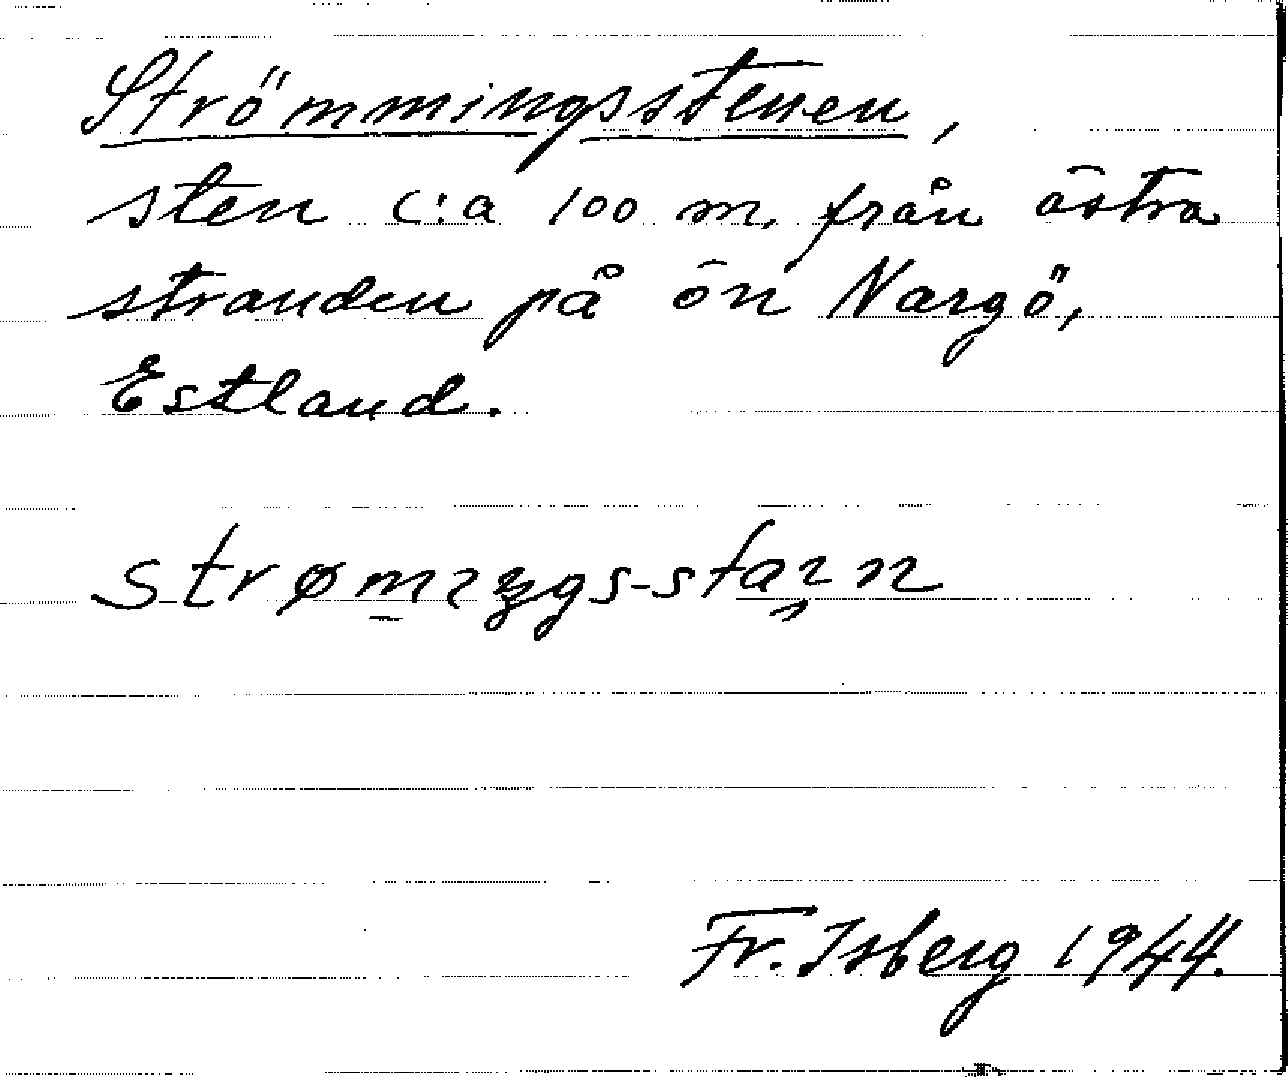 Strömmingsstenen,
sten c:a 100 m. från östra
stranden på ön Nargö,
Estland.
Fr. Isberg 1944.